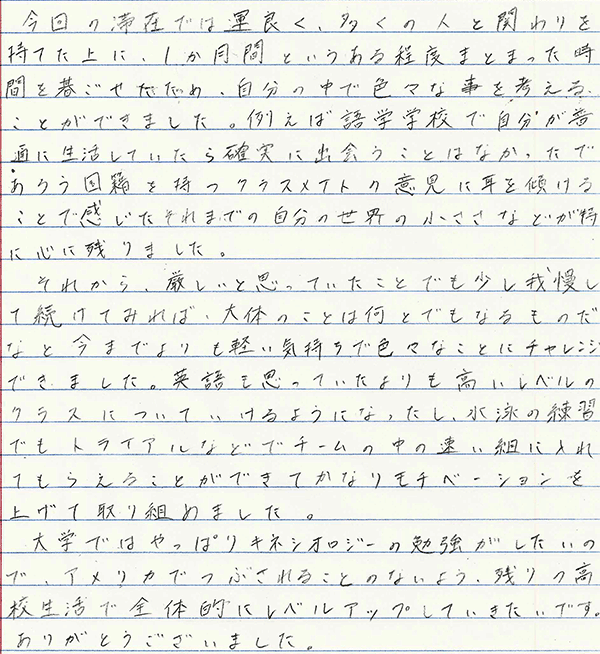 今回の滞在では運良く、多くの人と関わりを
持てた上に、1か月間というある程度まとまった時
間を暮ごせたため、自分の中で色々な事を考える
ことができました。例えば語学学校で自分が普
通に生活していたら確実に出会うことはなかったで
あろう国籍を持つクラスメイトの意見に耳を傾ける
ことで感じたそれまでの自分の世界の小ささなどが特
に心に残りました。
それから、厳しいと思っていたことでも少し我慢し
て続けてみれば、大体のことは何とでもなるものだ
なと今までよりも軽い気持ちで色々なことにチャレンジ
できました。英語も思っていたよりも高いレベルの
クラスについていけるようになったし、水泳の練習
でもトライアルなどでチームの中の速い組に入れ
てもらえることができてかなりモチベーションを
上げて取り組めました。
大学ではやっぱりキネシオロジーの勉強がしたいの
で、アメリカでつぶされることのないよう、残りの高
校生活で全体的にレベルアップしていきたいです。
ありがとうございました。